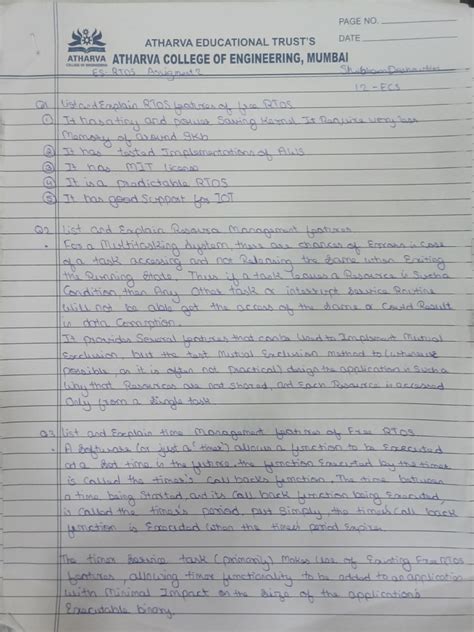 PAGE NO.
DATE
ATHARVA EDUCATIONAL TRUST'S
ATHARVA COLLEGE OF ENGINEERING, MUMBAI
ATHARVA
COLLEGE OF ENGINEERING
ES-RTOS Assignment 2
12-ECS
Q1 List and Explain RTOS features of free RTOS
① It has a tiny and power Saving Kernel It Require very less
Memory of around 9kb
② It has tested Implementations of AWS
③ It has MIT license
④ It is a predictable RTOS
⑤ It has good Support for IOT
Q2 List and Explain Resource Management features
• For a Multitasking System, there are chances of Errors in Case
of a task accessing and not Releasing the Same when Exiting
the Running State. Thus if a task leaves a Resource is Such a
Condition then Any Other task or interrupt Service Routine
Will not be able get the access of the Same or Could Result
in data Corruption.
It provides Several features that can be Used to Implement Mutual
Exclusion, but the Mutual Exclusion method is (whenever
possible, as it is often not practical) design the application is Such a
Way that Resources are not Shared, and Each Resource is accessed
Only from a Single task.
Q3 List and Explain time Management features of Free RTOS
• A Software (or just a 'timer') allows a function to be Executed
at a Set time in the future, the function Executed by the timer
is Called the timer's Call backs function. The time between
a time being Started, and its Call back function being Executed,
is Called the timer's period, Simply, the timer's Call back
function is Executed when the timer's period Expires
The timer Service task (primarily) Makes Use of Existing FreeRTOS
features, allowing timer functionality to be added to an application
With Minimal Impact on the Size of the application's
Executable binary.